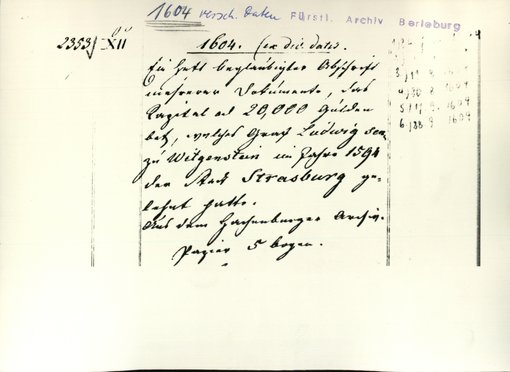 1604 versch. Daten Fürstl. Archiv Berleburg
2353 XII
1604. (ex div. datis).
Ein Heft beglaubigter Abschrift
mehrerer Dokumente, das
Kapital ad 20,000 Gulden
betr., welches Graf Ludwig sen.
zu Witgenstein im Jahre 1594
der Stadt Strasburg ge-
lehnt hatte.
Aus dem Hachenburger Archiv.
Papier 5 bogen.